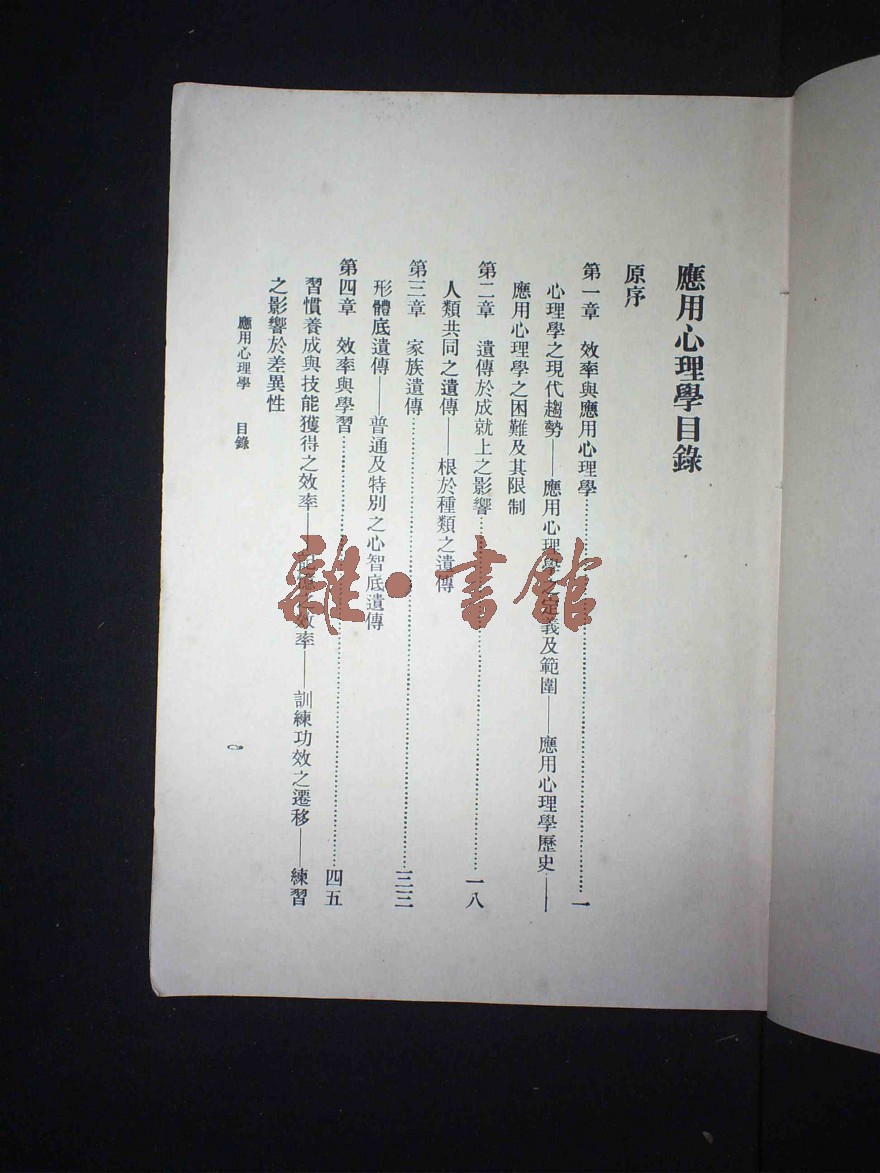 應用心理學目錄
原序
第一章 效率與應用心理學……………一
心理學之現代趨勢——應用心理學之定義及範圍——應用心理學歷史——
應用心理學之困難及其限制
第二章 遺傳於成就上之影響……………一八
人類共同之遺傳——根於種類之遺傳
第三章 家族遺傳……………三三
形體底遺傳——普通及特別之心智底遺傳
第四章 效率與學習……………四五
習慣養成與技能獲得之效率——效率——訓練功效之遷移——練習
之影響於差異性
應用心理學 目錄
雜·書館